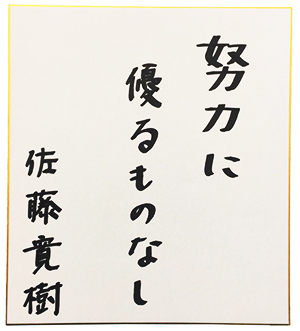 努力に
優るものなし
佐藤寛樹